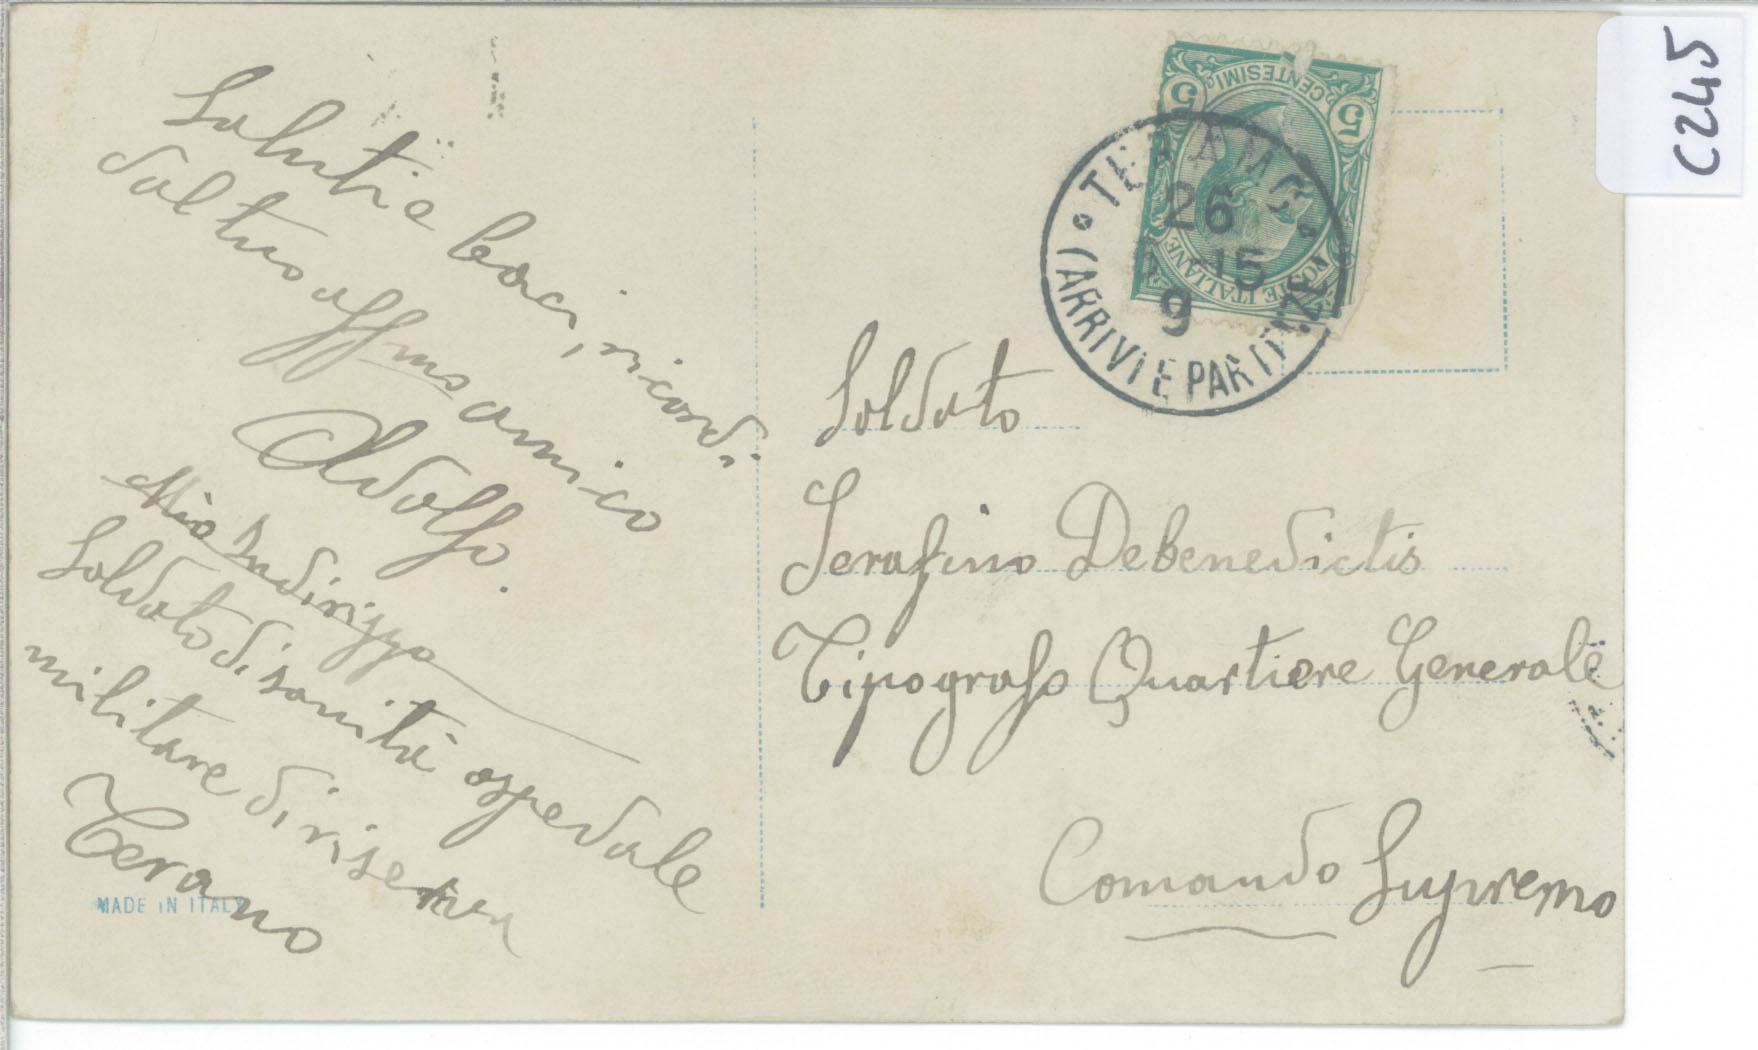 Saluti e baci, ricordi
dal tuo affmo amico
Adolfo.
Mio Indirizzo
Soldato di sanità ospedale
militare di riserva
Teramo
MADE IN ITALY
CENTESIMI
5 5
POSTE ITALIANE
TERAMO
26
-15
9
(ARRIVI E PARTENZE)
Soldato
Serafino Debenedictis
Tipografo Quartiere Generale
Comando Supremo
C245